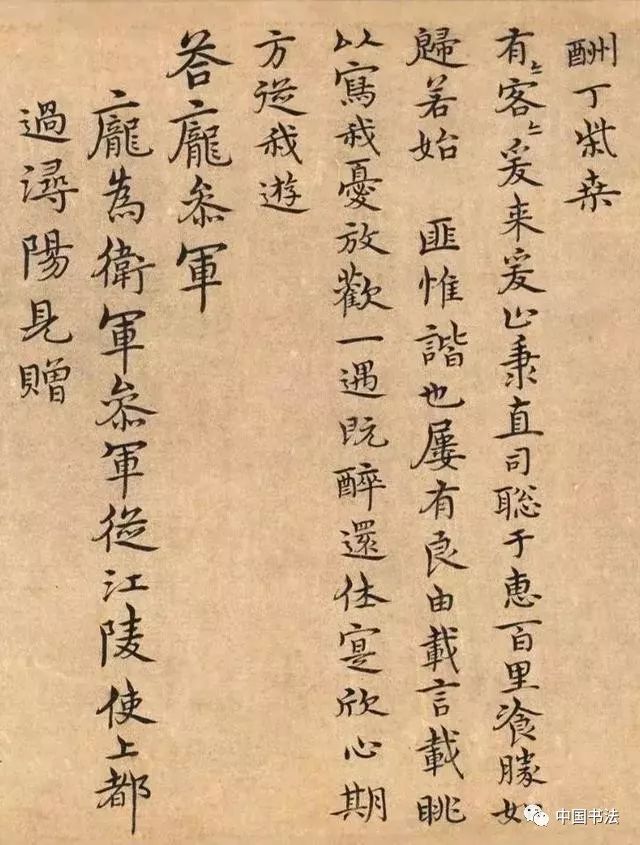 酬丁柴桒
有〻客〻爰来爰止秉直司聡于惠百里飡勝如
歸若始　匪惟諧也屢有良由載言載眺
以寫我憂放歡一遇既醉還休寔欣心期
方從我遊
荅龐叅軍
龐為衛軍叅軍從江陵使上都
過潯陽見贈
中国书法